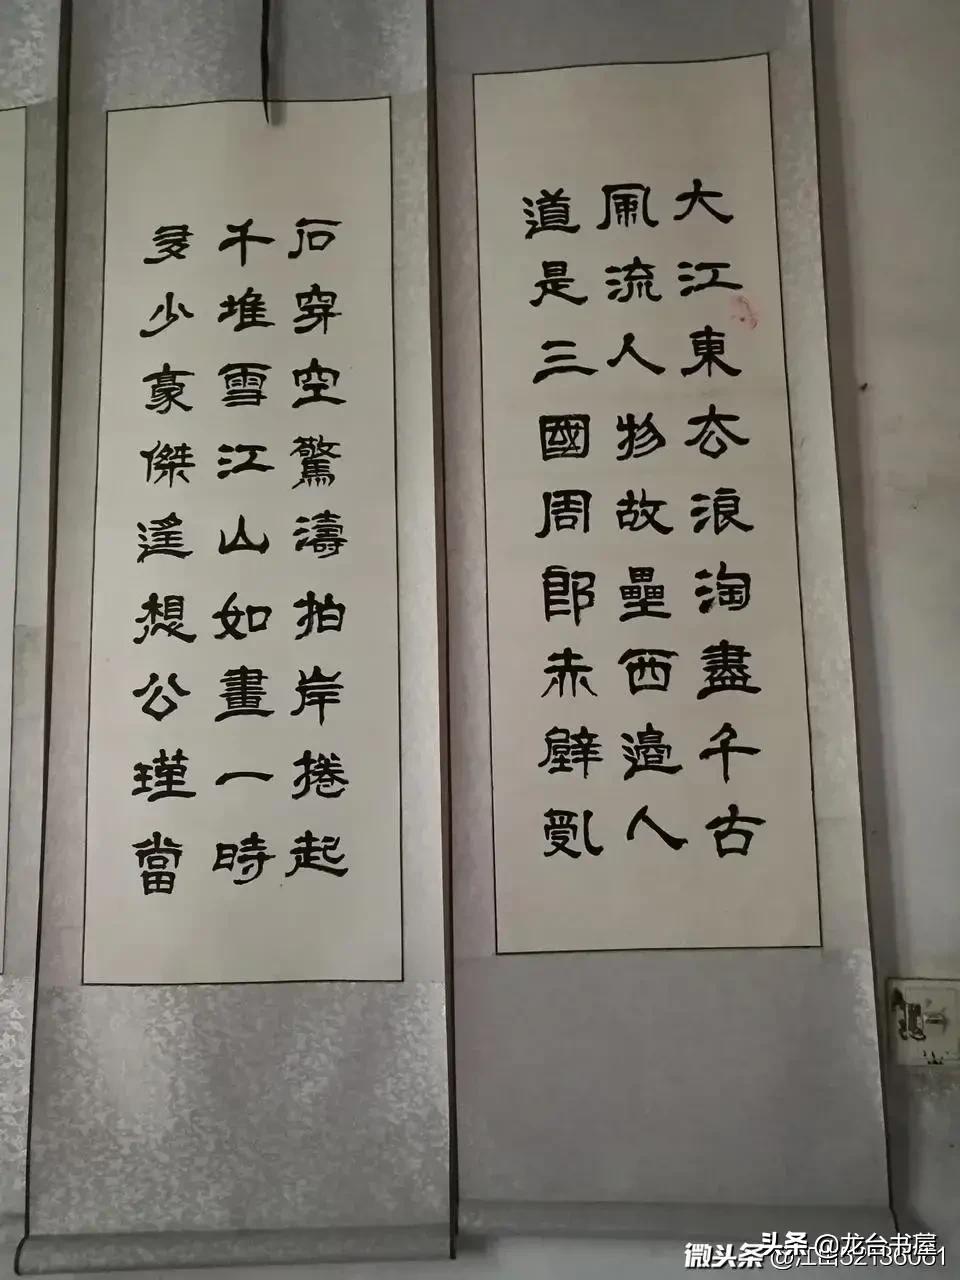 大江東去浪淘盡千古
風流人物故壘西邊人
道是三國周郎赤壁亂
石穿空驚濤拍岸捲起
千堆雪江山如畫一時
多少豪傑遙想公瑾當
头条 @龙台书屋
微头条